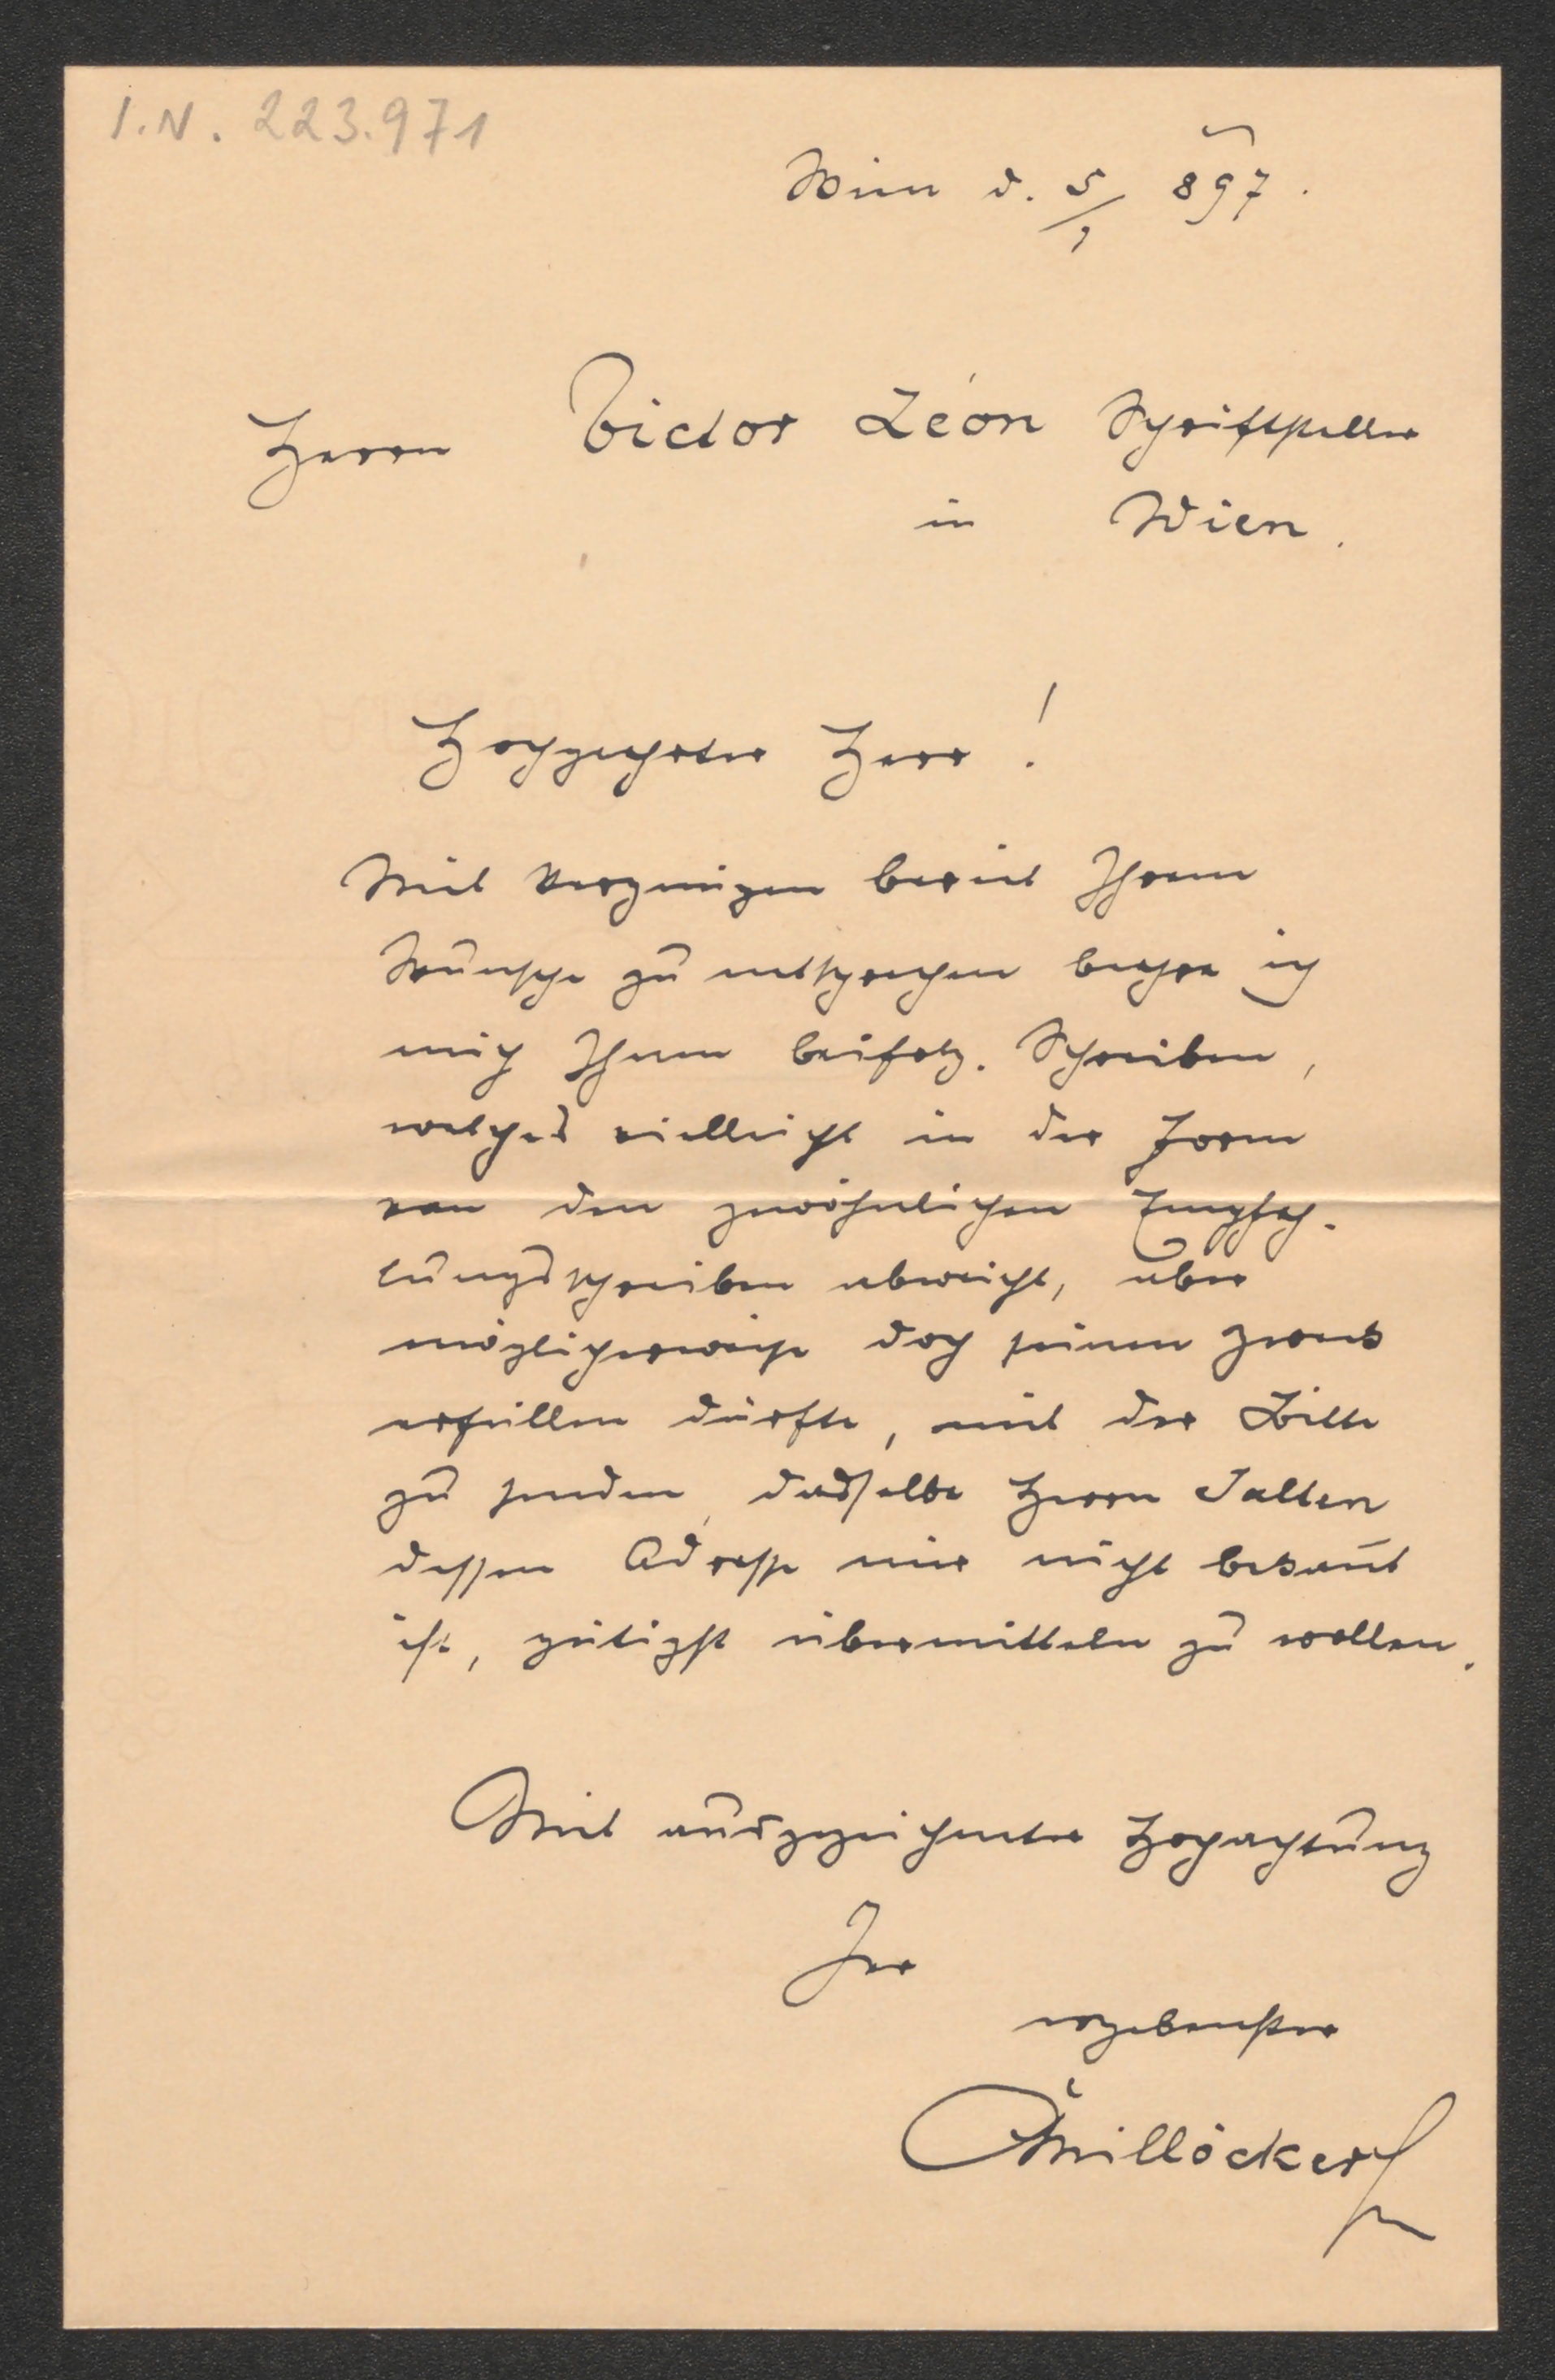 I.N. 223.971
Wien d. 5/1 897.
Herrn Victor Léon Schriftsteller
in Wien.
Hochgeehrter Herr!
Mit Vergnügen bereit Ihrem
Wunsche zu entsprechen beehre ich
mich Ihnen beifolg. Schreiben,
welches vielleicht in der Form
von den gewöhnlichen Empfeh-
lungsschreiben abweicht, aber
möglicherweise doch seinen Zweck
erfüllen dürfte, mit der Bitte
zu senden, dasselbe Herrn Salten
dessen Adresse mir nicht bekannt
ist, gütigst übermitteln zu wollen.
Mit ausgezeichneter Hochachtung
Ihr
ergebenster
CMillöcker